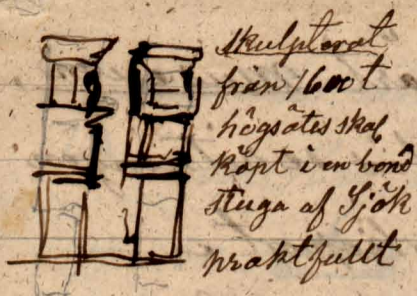 skulpterat
från 1600 t
högsätesskåp
köpt i en bond
stuga af Sjök
praktfullt